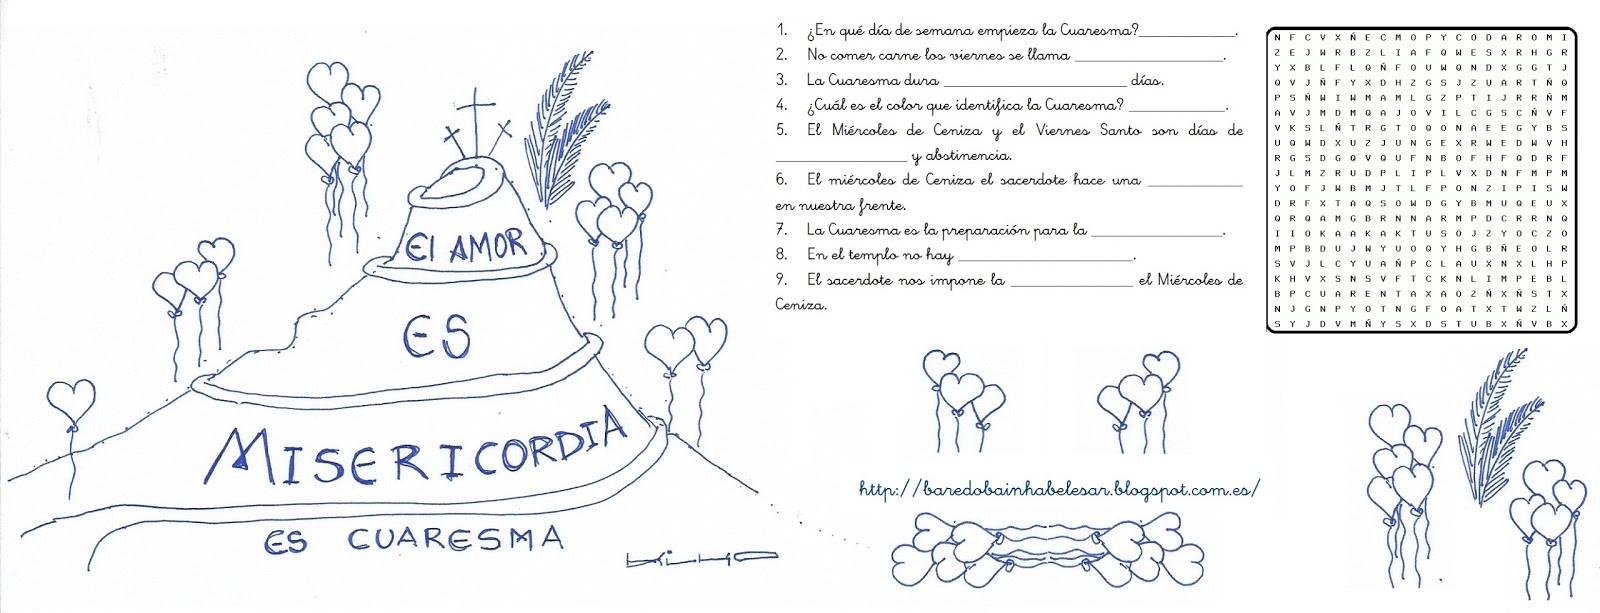 El AMOR
ES
MISERICORDIA
ES CUARESMA
KIKO
1. ¿En qué día de semana empieza la Cuaresma?____________.
2. No comer carne los viernes se llama __________________.
3. La Cuaresma dura ______________________ días.
4. ¿Cuál es el color que identifica la Cuaresma? ____________.
5. El Miércoles de Ceniza y el Viernes Santo son días de
________________ y abstinencia.
6. El miércoles de Ceniza el sacerdote hace una ____________
en nuestra frente.
7. La Cuaresma es la preparación para la ________________.
8. En el templo no hay _____________________.
9. El sacerdote nos impone la _______________ el Miércoles de
Ceniza.
N F C V X Ñ E C M O P Y C O D A R O M I
Z E J W R B Z L I A F Q W E S X R H G R
Y X B L F L Q Ñ F O U W Q N D X G G T J
Q V J Ñ F Y X D H Z G S J Z U A R T Ñ Q
P S Ñ W I W M A M L G Z P T I J R R Ñ M
A V J M D M Q A J O V I L C G S C Ñ V F
V K S L Ñ T R G T O Q O N A E E G Y B S
U Q W D X U Z J U N G E X R W E D W V H
R G S D G Q V Q U F N B O F H F Q D R F
J L M Z R U D P L I P L V X D N F M P M
Y O F J W B M J T L F P O N Z I P I S W
D R F X T A Q S O W D G Y B M U Q E U X
Q R Q A M G B R N N A R M P D C R R N Q
I I O K A A K A K T U S O J Z Y O C Z O
M P B D U J W Y U O Q Y H G B Ñ E O L R
S V J L C Y U A Ñ P C L A U X N X L H P
K H V X S N S V F T C K N L I M P E B L
B P C U A R E N T A X A O Z Ñ X Ñ S T X
N J G N P Y O T N G F O A T X T W Z L Ñ
S Y J D V M Ñ Y S X D S T U B X Ñ V B X
http://baredobainhabelesar.blogspot.com.es/